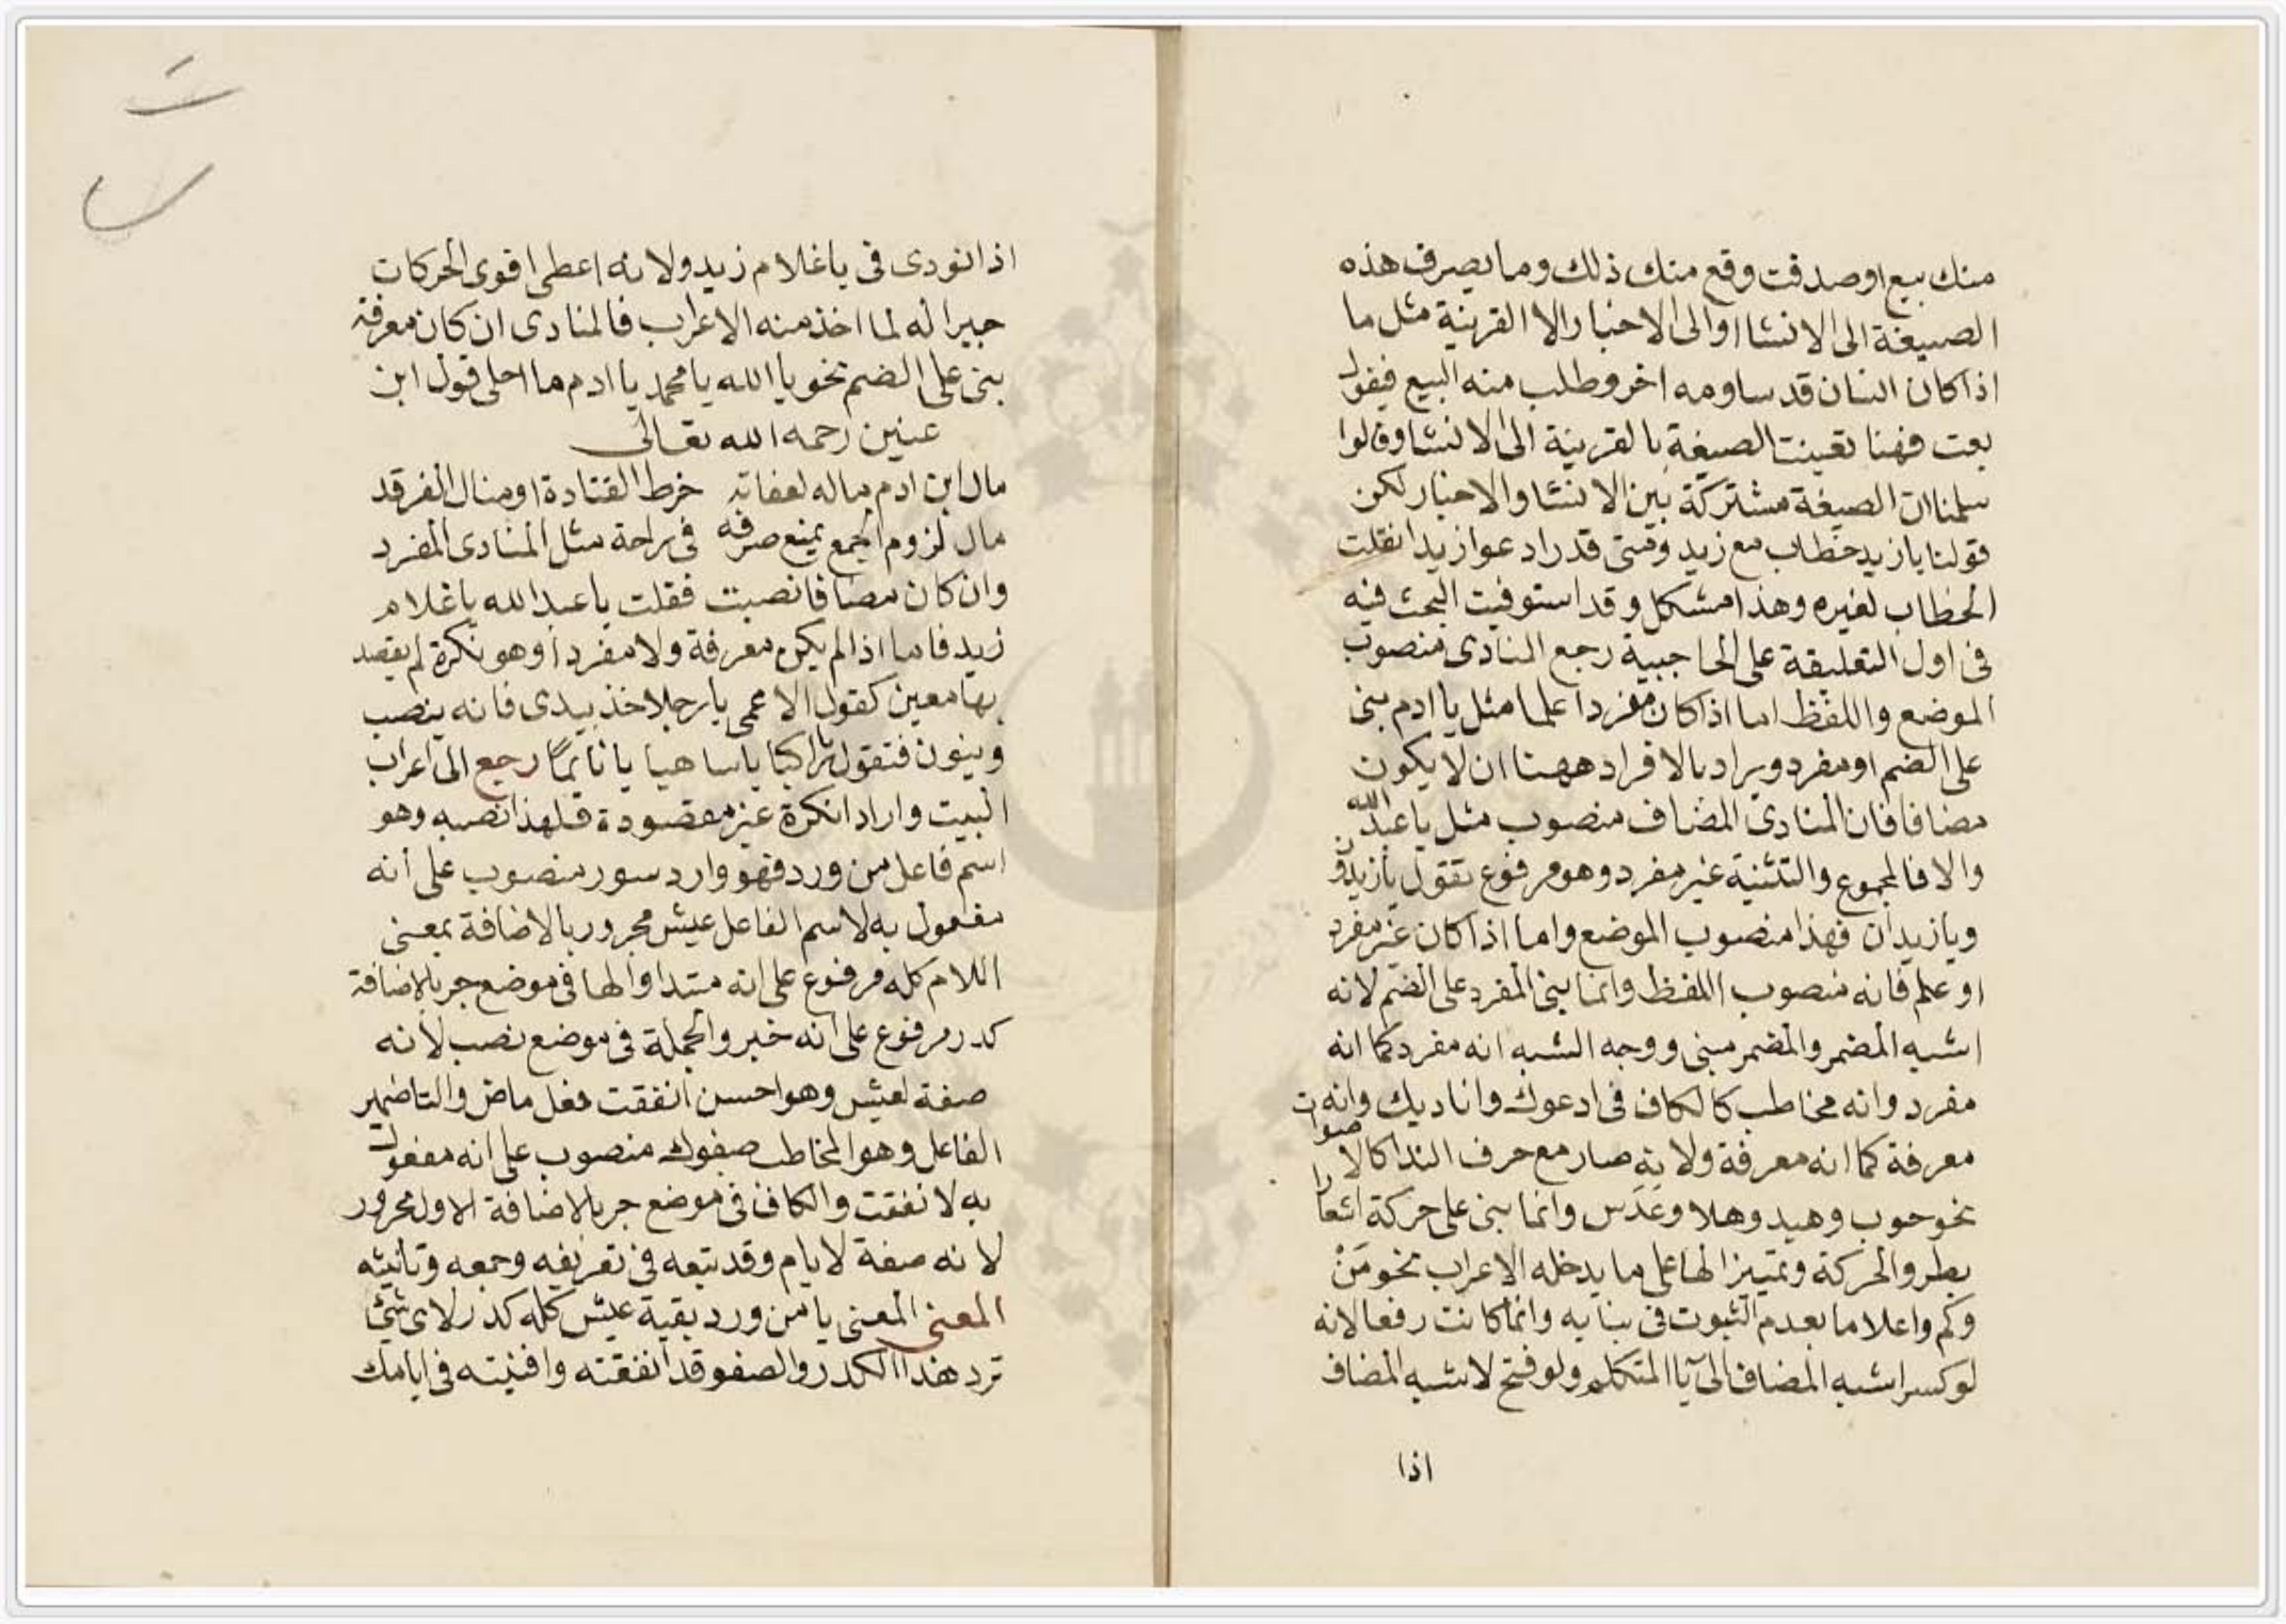 منك بيع او صدقت وقع منك ذلك وما يصرف هذه
الصيغة الى الانشا او الى الاخبار الا القرينة مثل ما
اذا كان انسان قد ساومه اخر وطلب منه البيع فيقول
بعت فهنا تعينت الصيغة بالقرينة الى الانشا وقالوا
سلمنا ان الصيغة مشتركة بين الانشا والاخبار لكن
قولنا يا زيد خطاب مع زيد ومتى قدر ادعوا زيدا انقلب
الخطاب لغيره وهذا مشكل وقد استوفيت البحث فيه
فى اول التعليقة على الحاجبية رجع المنادى منصوب
الموضع واللفظ اما اذا كان مفردا علما مثل يا ادم بنى
على الضم او مفرد ويراد بالافراد ههنا ان لا يكون
مضافا فان المنادى المضاف منصوب مثل يا عبد الله
والا فالمجموع والتثنية غير مفرد وهو مرفوع تقول يا زيدون
ويا زيدان فهذا منصوب الموضع واما اذا كان غير مفرد
او علم فانه منصوب اللفظ وانما بنى المفرد على الضم لانه
اشبه المضمر والمضمر مبنى ووجه الشبه انه مفرد كما انه
مفرد وانه مخاطب كالكاف فى ادعوك واناديك وانه
معرفة كما انه معرفة ولانه صار مع حرف الندا كالاصوات
نحو حوب وهيد وهلا وعَدَس وانما بنى على حركة اشعارا
بطرو الحركة وتمييزا لها على ما يدخله الاعراب نحو مَنْ
وكم واعلاما بعدم الثبوت فى بنايه وانما كانت رفعا لانه
لو كسر اشبه المضاف الى يا المتكلم ولو فتح لاشبه المضاف
اذا
اذا نودى فى يا غلام زيد ولانه اعطى اقوى الحركات
جبرا له لما اخذ منه الاعراب فالمنادى ان كان معرفة
بنى على الضم نحو يا الله يا محمد يا ادم ما احلى قول ابن
عنين رحمه الله تعالى
مال ابن ادم ماله لعفاته خرط القتادة او منال الفرقد
مال لزوم الجمع يمنع صرفه فى راحة مثل المنادى المفرد
وان كان مضافا نصبت فقلت يا عبد الله يا غلام
زيد فاما اذا لم يكن معرفة ولا مفردا وهو نكرة لم يقصد
بها معين كقول الاعمى يا رجلا خذ بيدى فانه ينصب
وينون فتقول يا راكبا يا ساهيا يا نائمًا رجع الى اعراب
البيت واراد انكرة غير مقصودة فلهذا نصبه وهو
اسم فاعل من ورد فهو وارد سور منصوب على انه
مفعول به لاسم الفاعل عيش مجرور بالاضافة بمعنى
اللام كله مرفوع على انه مبتدا والها فى موضع جر بالاضافة
كدر مرفوع على انه خبر والجملة فى موضع نصب لانه
صفة لعيش وهو احسن انفقت فعل ماض والتا ضمير
الفاعل وهو المخاطب صفوك منصوب على انه مفعول
به لانفقت والكاف فى موضع جر بالاضافة الاول مجرور
لانه صفة لايام وقد تبعه فى تعريفه وجمعه وتانيثه
المعنى المعنى يا من ورد بقية عيش كله كدر لاى شئ
ترد هذا الكدر والصفو قد انفقته وافنيته فى ايامك